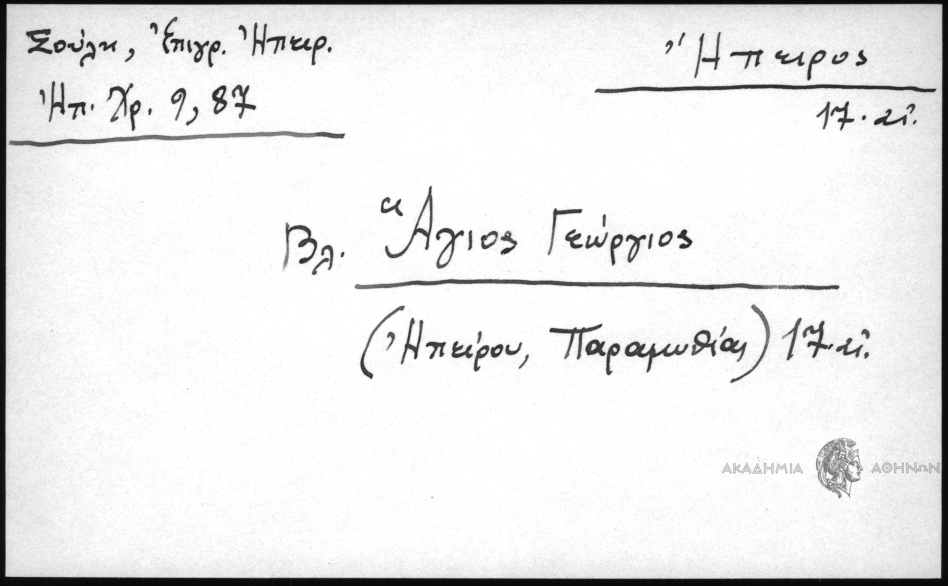 Σούλη, Ἐπιγρ. Ἠπειρ.
Ἠπ. Χρ. 9, 87
Ἤπειρος
17. αἰ.
Βλ. Ἅγιος Γεώργιος
(Ἠπείρου, Παραμυθίας) 17. αἰ.
ΑΚΑΔΗΜΙΑ ΑΘΗΝΩΝ